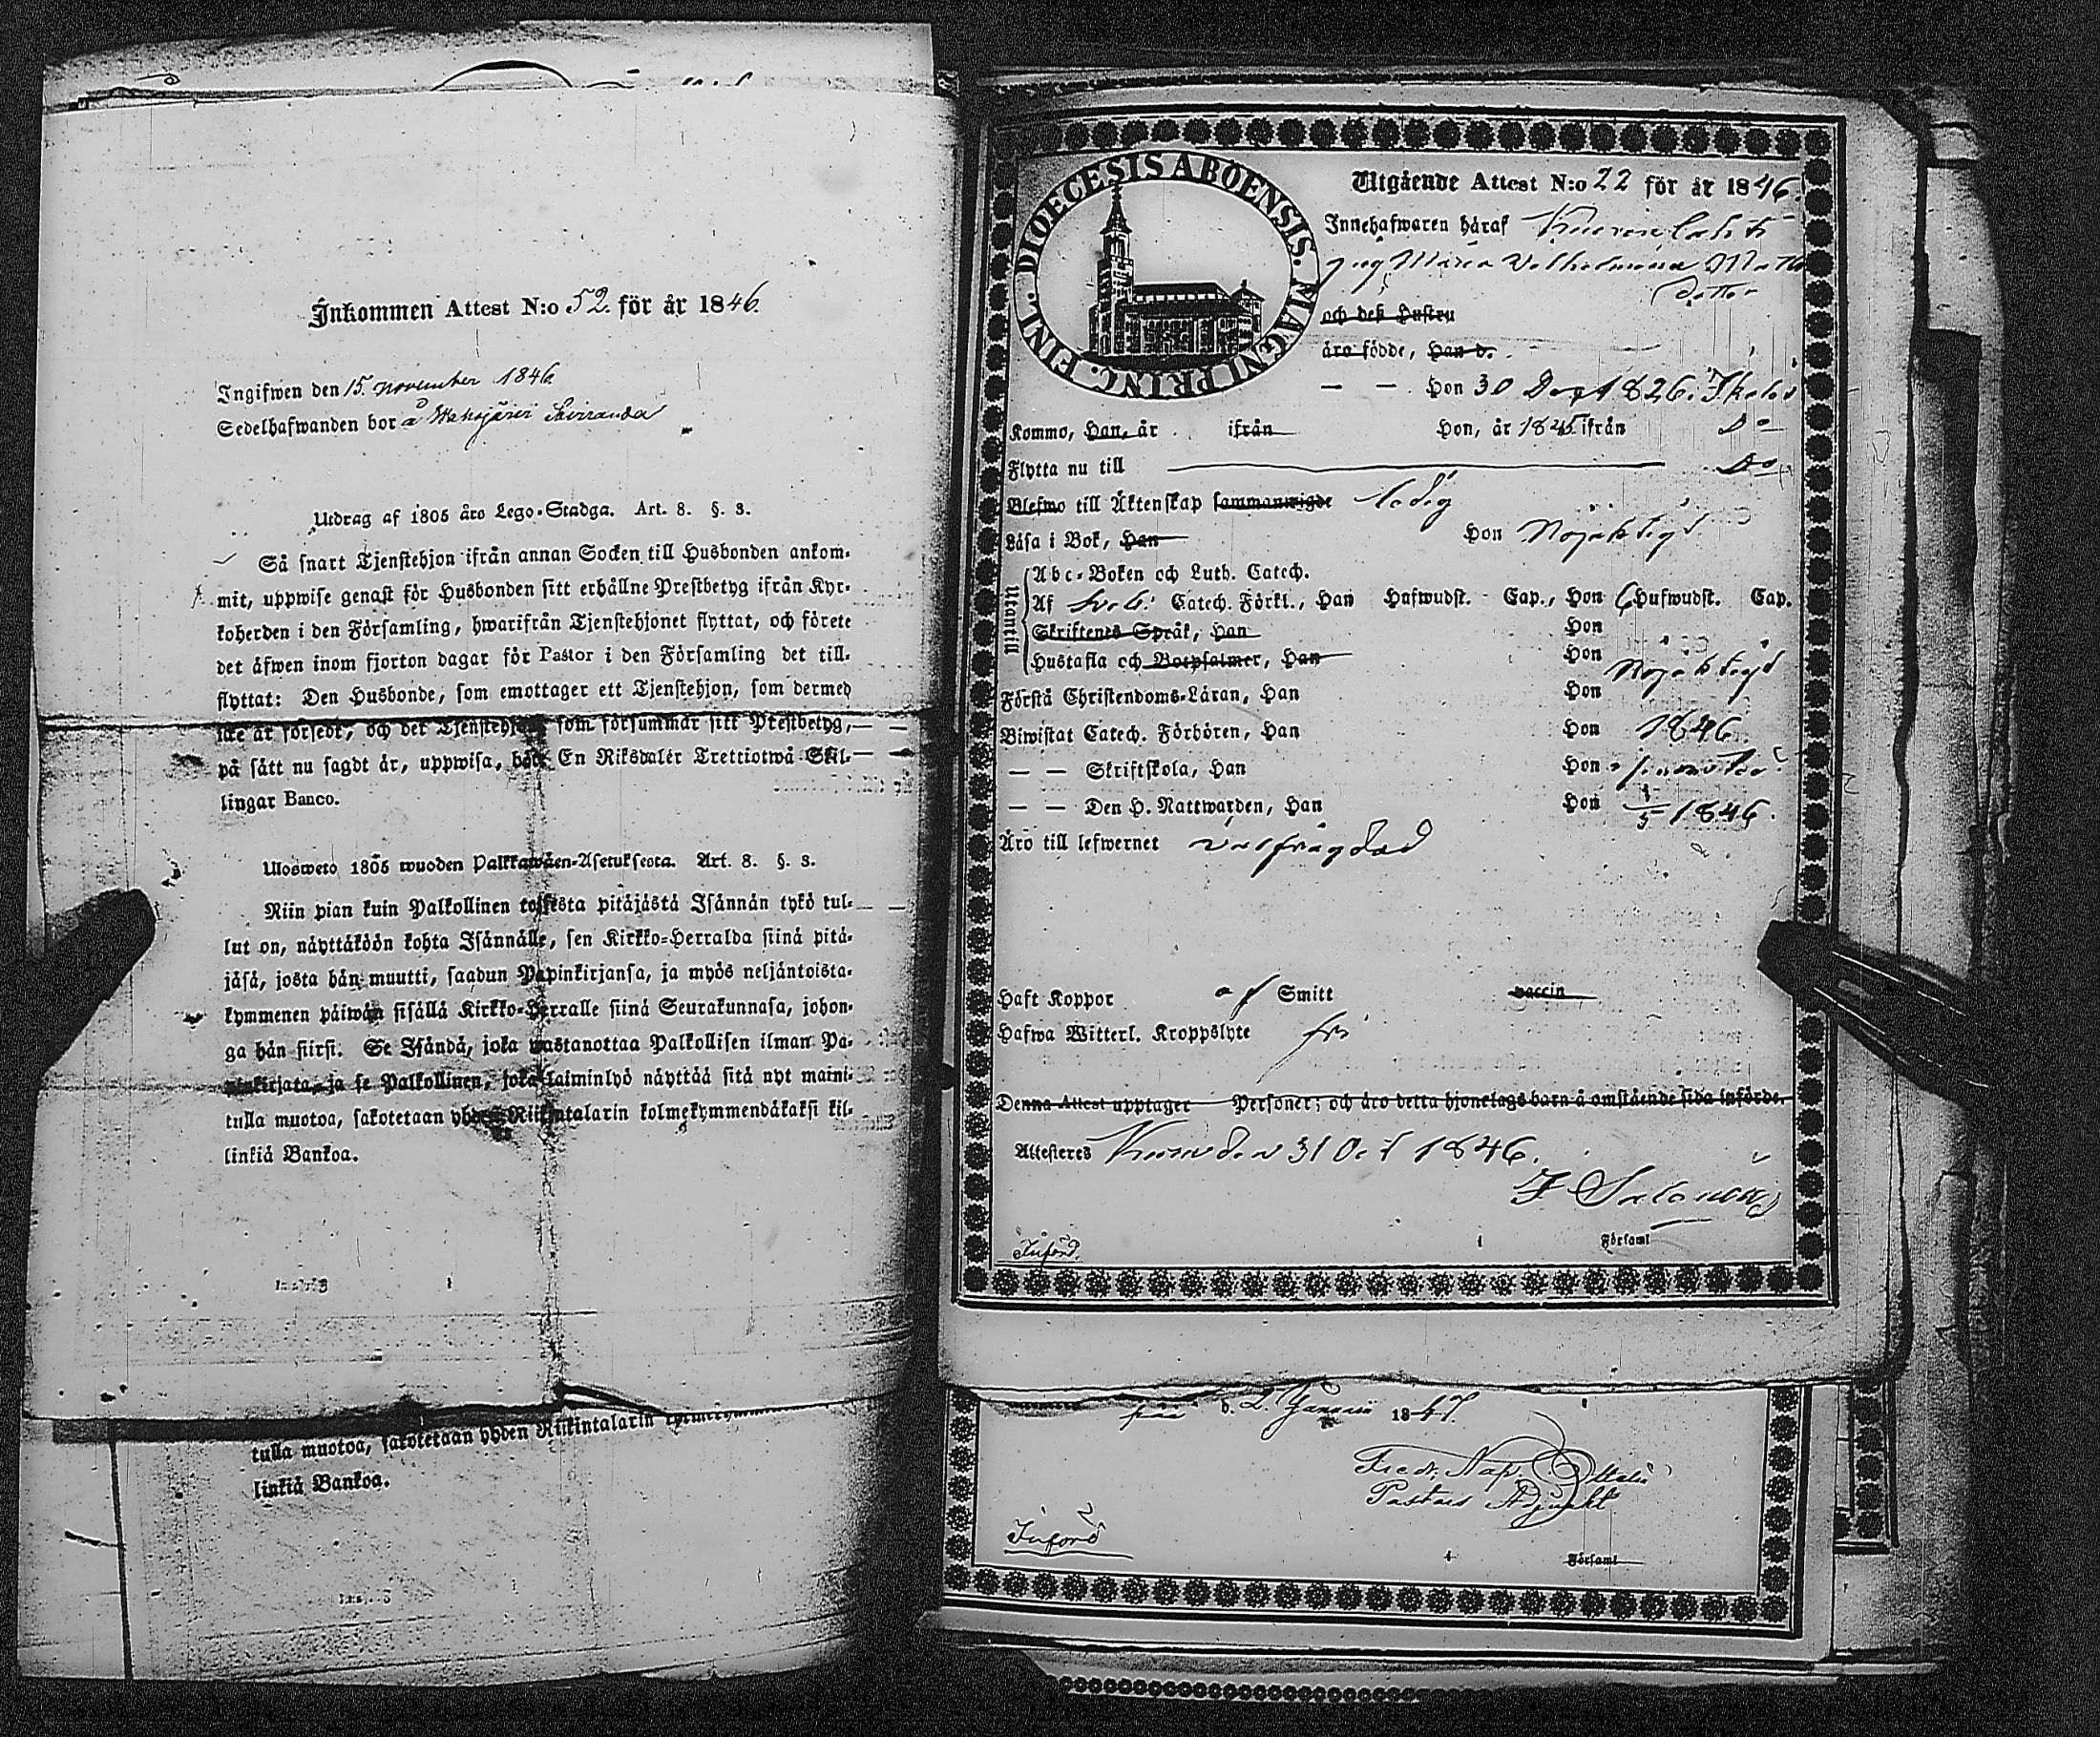 Inkommen Attest N:o 52. för år 1846.
Ingifwen den 15. november 1846.
Sedelhafwanden bor å
Utdrag af 1805 åro Lego-Stadga. Art. 8. §. 3.
Så snart Tjenstehjon ifrån annan Socken till Husbonden ankom-
mit, uppwise genast för Husbonden sitt erhållne Prestbetyg ifrån Kyr-
koherden i den Församling, hwarifrån Tjenstehjonet flyttat, och förete
det äfwen inom fjorton dagar för Pastor i den Församling det till-
flyttat: Den Husbonde, som emottager ett Tjenstehjon, som dermed
icke är försedt, och det Tjenstehjon som försummar sitt Prestbetyg,
på sätt nu sagdt är, uppwisa, böte En Riksdaler Trettiotwå Skil-
lingar Banco.
Ulosweto 1805 wuoden Palkkawäen-Asetuksesta. Art. 8. §. 3.
Niin pian kuin Palkollinen toisesta pitäjästä Isännän tykö tul-
lut on, näyttäköön kohta Isännälle, sen Kirkko-Herralda siinä pitä-
jäsä, josta hän muutti, saadun Papinkirjansa, ja myös neljäntoista-
kymmenen päiwän sisällä Kirkko-Herralle siinä Seurakunnasa, johon-
ga hän siirsi. Se Isändä, joka wastanottaa Palkollisen ilman Pa-
pinkirjata, ja se Palkollinen, joka laiminlyö näyttää sitä nyt maini-
tulla muotoa, sakotetaan yhden Riikintalarin kolmekymmendäkaksi kil-
linkiä Bankoa.
tulla muotoa, sakotetaan yhden Riikintalarin
linkiä Bankoa.
FINL. DIOECESIS ABOENSIS. MAGNI PRINC.
Utgående Attest N:o 22 för år 1846.
Innehafwaren häraf
pig Maria Vilhelmina Matts
dotter
och deß Hustru
äro födde, Han d.
— — Hon 30 1826. i
Kommo, Han, år ifrån Hon, år 1845 ifrån Do
Flytta nu till Do
Blefwo till Äktenskap sammanwigde ledig
Läsa i Bok, Han Hon Nöjaktigt
Utantill
Abc-Boken och Luth. Catech.
Af Sveb. Catech. Förkl., Han Hufwudst. Cap., Hon 6 Hufwudst. Cap.
Skriftenes Språk, Han Hon
Hustafla och Botpsalmer, Han Hon
Förstå Christendoms-Läran, Han Hon Nöjaktigt
Biwistat Catech. Förhören, Han Hon 1846
— — Skriftskola, Han Hon
— — Den H. Nattwarden, Han Hon 1846.
Äro till lefwernet välfrägdad
Haft Koppor af Smitt vaccin
Hafwa Witterl. Kroppslyte fri
Denna Attest upptager Personer; och äro detta hjonelags barn å omstående sida införde.
Attesteras den 31 Oct 1846.
Införd.
i Församl
d. 2. Januarii 1847.
Fredr. Nap.
Pastors Adjunkt
Införd
i Församl